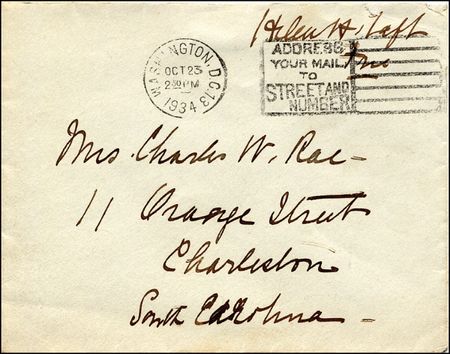 Helen H. Taft
Free
WASHINGTON, D.C. 13
OCT 23
2 30 PM
1934
ADDRESS
YOUR MAIL
TO
STREET AND
NUMBER
Mrs Charles W. Rae -
11 Orange Street
Charleston
South Carolina -